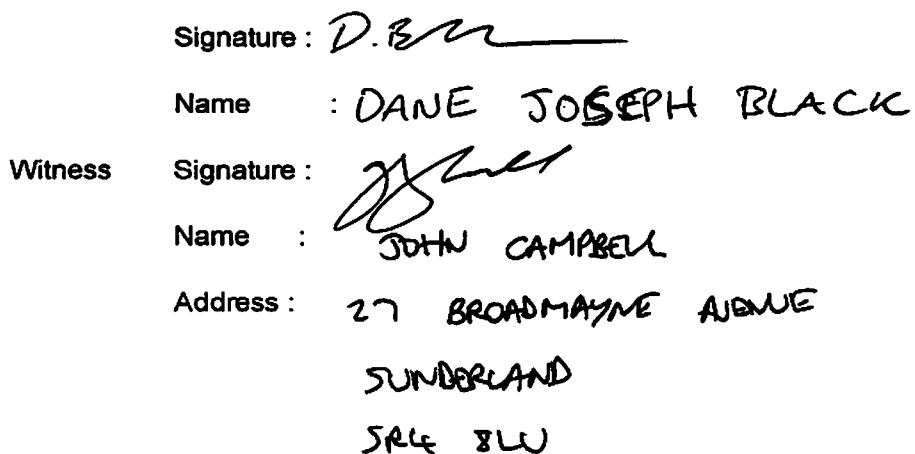 Signature : D. B
Name : DANE JOSEPH BLACK
Witness Signature :
Name : JOHN CAMPBELL
Address : 27 BROADMAYNE AVENUE
SUNDERLAND
SR4 8LU